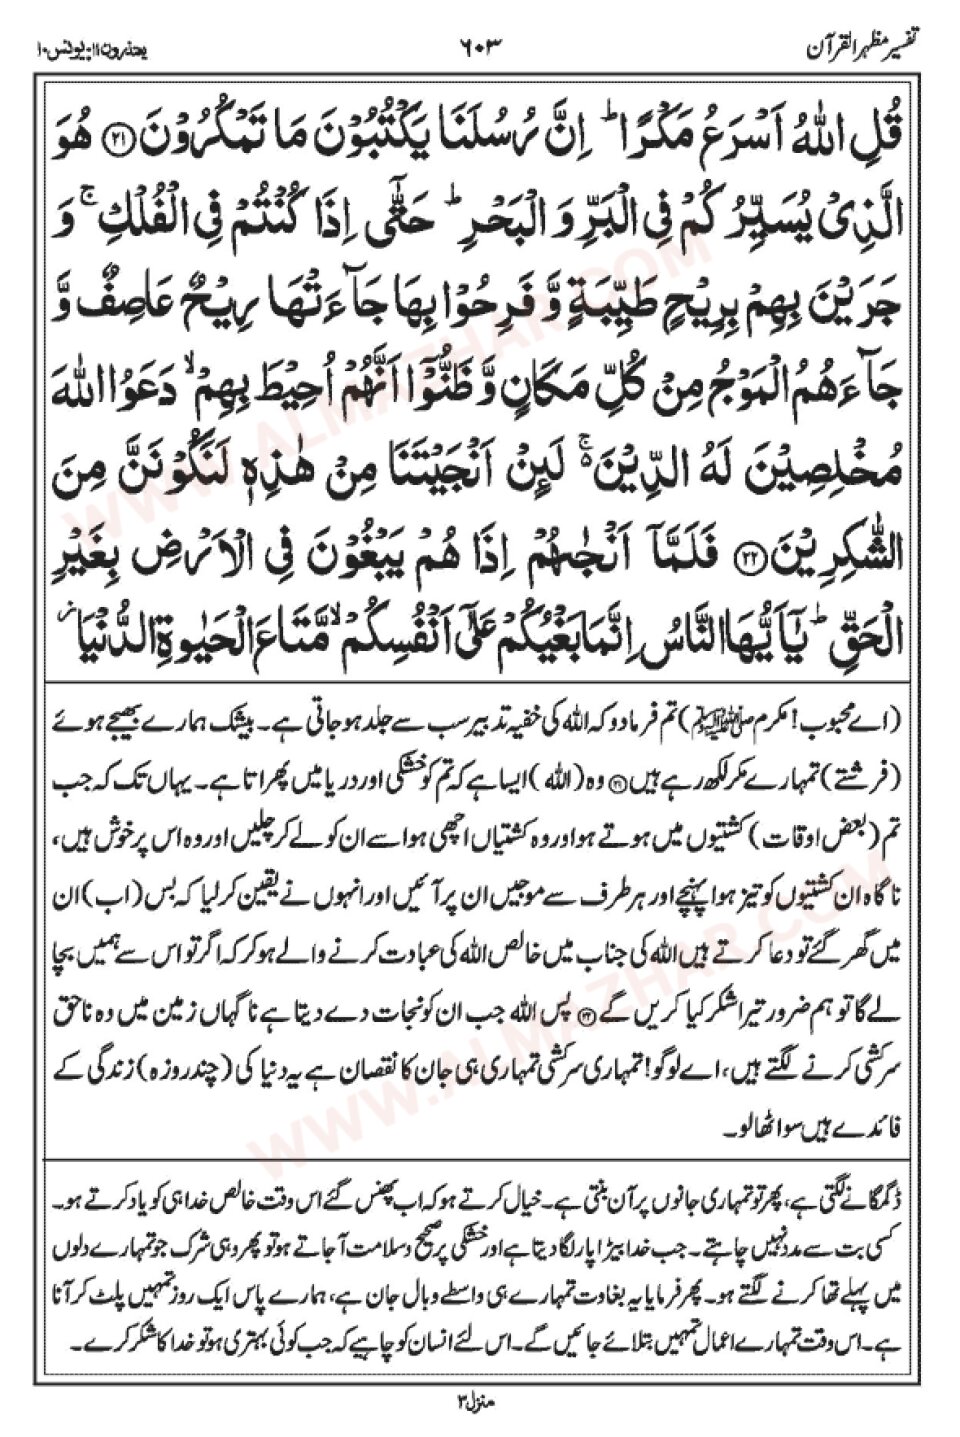 تفسیر مظہر القرآن ۶۰۳ یعتذرون ۱۱: یونس ۱۰
قُلِ اللّٰهُ اَسْرَعُ مَكْرًا ؕ اِنَّ رُسُلَنَا یَكْتُبُوْنَ مَا تَمْكُرُوْنَ ﴿۲۱﴾ هُوَ
الَّذِیْ یُسَیِّرُ كُمْ فِی الْبَرِّ وَ الْبَحْرِ ؕ حَتّٰۤی اِذَا كُنْتُمْ فِی الْفُلْكِ ۚ وَ
جَرَیْنَ بِهِمْ بِرِیْحٍ طَیِّبَةٍ وَّ فَرِحُوْا بِهَا جَآءَتْهَا رِیْحٌ عَاصِفٌ وَّ
جَآءَهُمُ الْمَوْجُ مِنْ كُلِّ مَكَانٍ وَّ ظَنُّوْۤا اَنَّهُمْ اُحِیْطَ بِهِمْ ۙ دَعَوُا اللّٰهَ
مُخْلِصِیْنَ لَهُ الدِّیْنَ ۚ۬ لَىِٕنْ اَنْجَیْتَنَا مِنْ هٰذِهٖ لَنَكُوْنَنَّ مِنَ
الشّٰكِرِیْنَ ﴿۲۲﴾ فَلَمَّاۤ اَنْجٰىهُمْ اِذَا هُمْ یَبْغُوْنَ فِی الْاَرْضِ بِغَیْرِ
الْحَقِّ ؕ یٰۤاَیُّهَا النَّاسُ اِنَّمَا بَغْیُكُمْ عَلٰۤی اَنْفُسِكُمْ ۙ مَّتَاعَ الْحَیٰوةِ الدُّنْیَا ؗ
(اے محبوب! مکرم ﷺ) تم فرما دو کہ اللہ کی خفیہ تدبیر سب سے جلد ہو جاتی ہے۔ بیشک ہمارے بھیجے ہوئے
(فرشتے) تمہارے مکر لکھ رہے ہیں ﴿۲۱﴾ وہ (اللہ) ایسا ہے کہ تم کو خشکی اور دریا میں پھراتا ہے۔ یہاں تک کہ جب
تم (بعض اوقات) کشتیوں میں ہوتے ہو اور وہ کشتیاں اچھی ہوا سے ان کو لے کر چلیں اور وہ اس پر خوش ہیں،
ناگاہ ان کشتیوں کو تیز ہوا پہنچے اور ہر طرف سے موجیں ان پر آئیں اور انہوں نے یقین کر لیا کہ بس (اب) ان
میں گھر گئے تو دعا کرتے ہیں اللہ کی جناب میں خالص اللہ کی عبادت کرنے والے ہو کر کہ اگر تو اس سے ہمیں بچا
لے گا تو ہم ضرور تیرا شکر کیا کریں گے ﴿۲۲﴾ پس اللہ جب ان کو نجات دے دیتا ہے ناگہاں زمین میں وہ ناحق
سرکشی کرنے لگتے ہیں، اے لوگو! تمہاری سرکشی تمہاری ہی جان کا نقصان ہے یہ دنیا کی (چند روزہ) زندگی کے
فائدے ہیں سو اٹھا لو۔
ڈگمگانے لگتی ہے، پھر تو تمہاری جانوں پر آن بنتی ہے۔ خیال کرتے ہو کہ اب پھنس گئے اس وقت خالص خدا ہی کو یاد کرتے ہو۔
کسی بت سے مدد نہیں چاہتے۔ جب خدا بیڑا پار لگا دیتا ہے اور خشکی پر صحیح وسلامت آ جاتے ہو تو پھر وہی شرک جو تمہارے دلوں
میں پہلے تھا کرنے لگتے ہو۔ پھر فرمایا یہ بغاوت تمہارے ہی واسطے وبال جان ہے، ہمارے پاس ایک روز تمہیں پلٹ کر آنا
ہے۔ اس وقت تمہارے اعمال تمہیں بتلائے جائیں گے۔ اس لئے انسان کو چاہیے کہ جب کوئی بہتری ہو تو خدا کا شکر کرے۔
منزل ۳
WWW.ALMAZHAR.COM
WWW.ALMAZHAR.COM